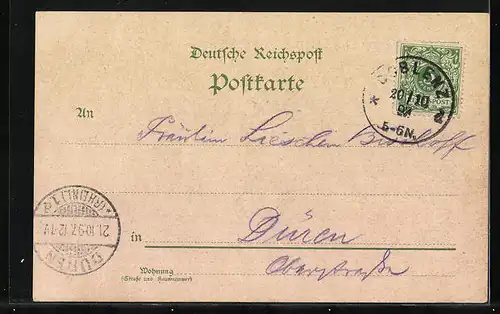 Deutsche Reichspost
Postkarte
COBLENZ 2
20/10
5-6N.
An
Fräulein Lieschen Bischoff
(RHEINL) 1
21.10.97.12-1V
DÜREN
in Düren
Wohnung
(Straße und Hausnummer)
Oberstraße